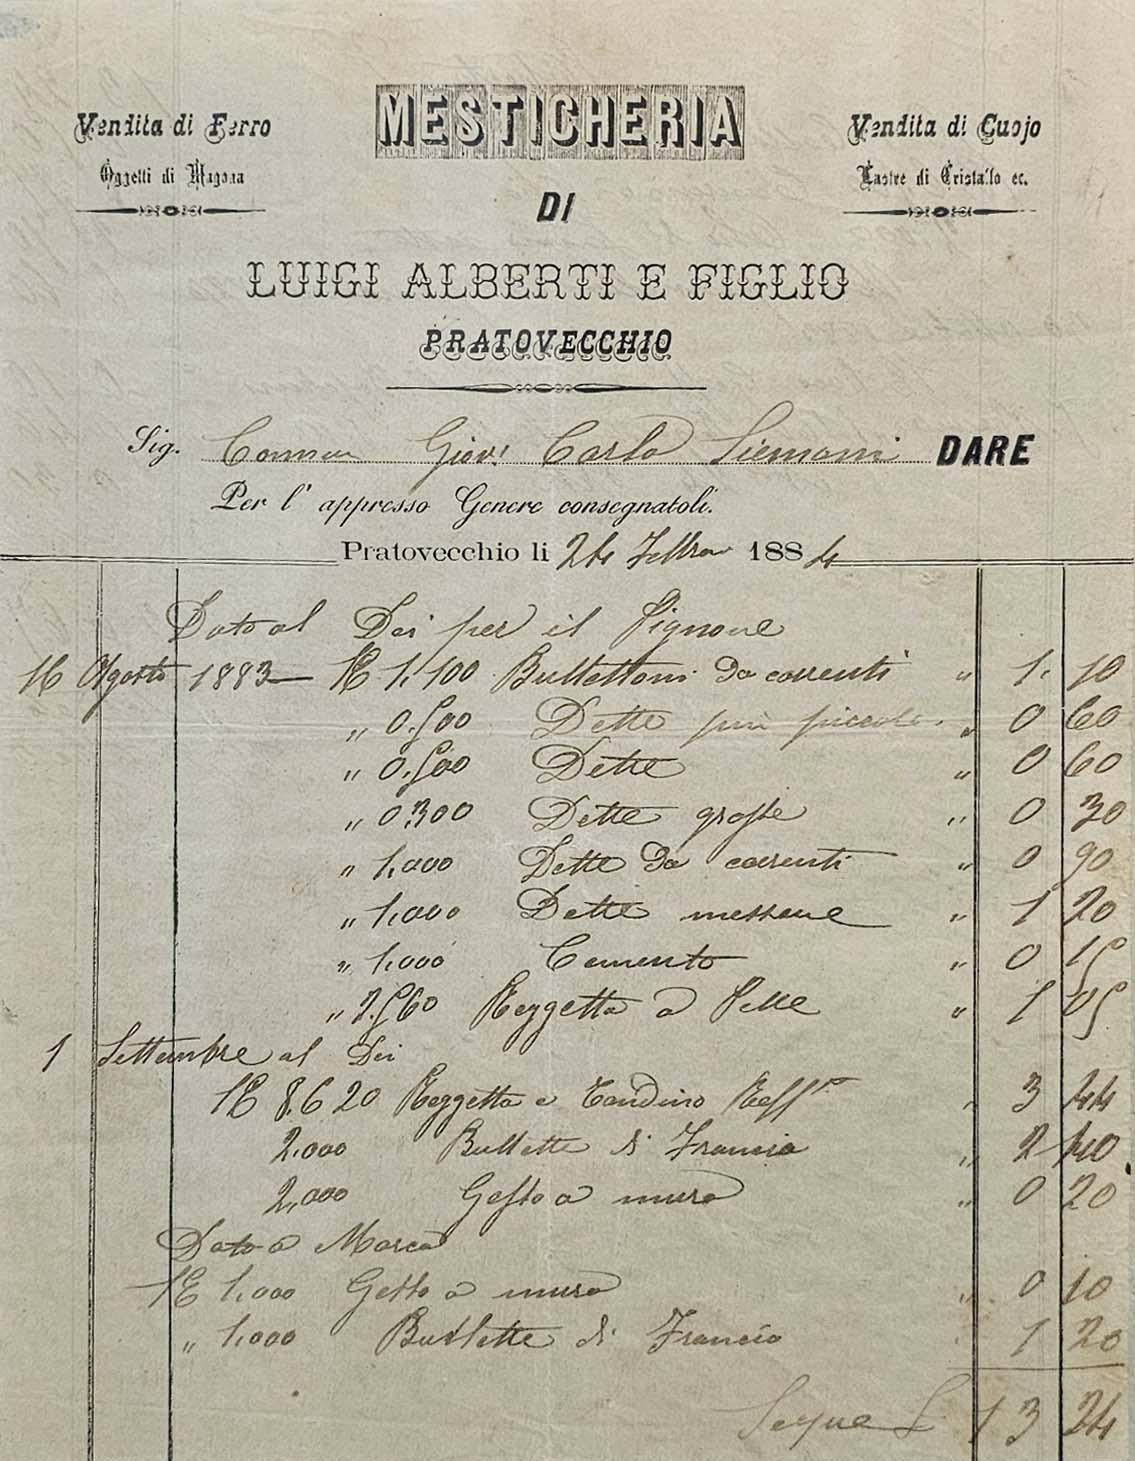 MESTICHERIA
Vendita di Ferro
Oggetti di Magona
Vendita di Cuojo
Lastre di Cristallo ec.
DI
LUIGI ALBERTI E FIGLIO
PRATOVECCHIO
Sig. Giov. Carlo Siemoni DARE
Per l' appresso Genere consegnatoli.
Pratovecchio li 24 Febbraio 1884
Dato al Dei per il Signore
16 Agosto 1883 K 1.100 Bullettoni da correnti " 1. 10
" 0.500 Dette più piccole " 0 60
" 0.500 Dette " 0 60
" 0.300 Dette grosse " 0 30
" 1,000 Dette da correnti " 0 90
" 1,000 Dette mezzane " 1 20
" 1,000 Cemento " 0 15
" 2.560 Reggetta a " 1 05
1 Settembre al Dei
K 8.620 Reggetta e Tondino " 3 44
2,000 Bullette di Francia " 2 40
2,000 Gesso a muro " 0 20
Dato a Marco
K 1,000 Gesso a muro " 0 10
" 1,000 Bullette di Francia 1 20
Segue L 13 24